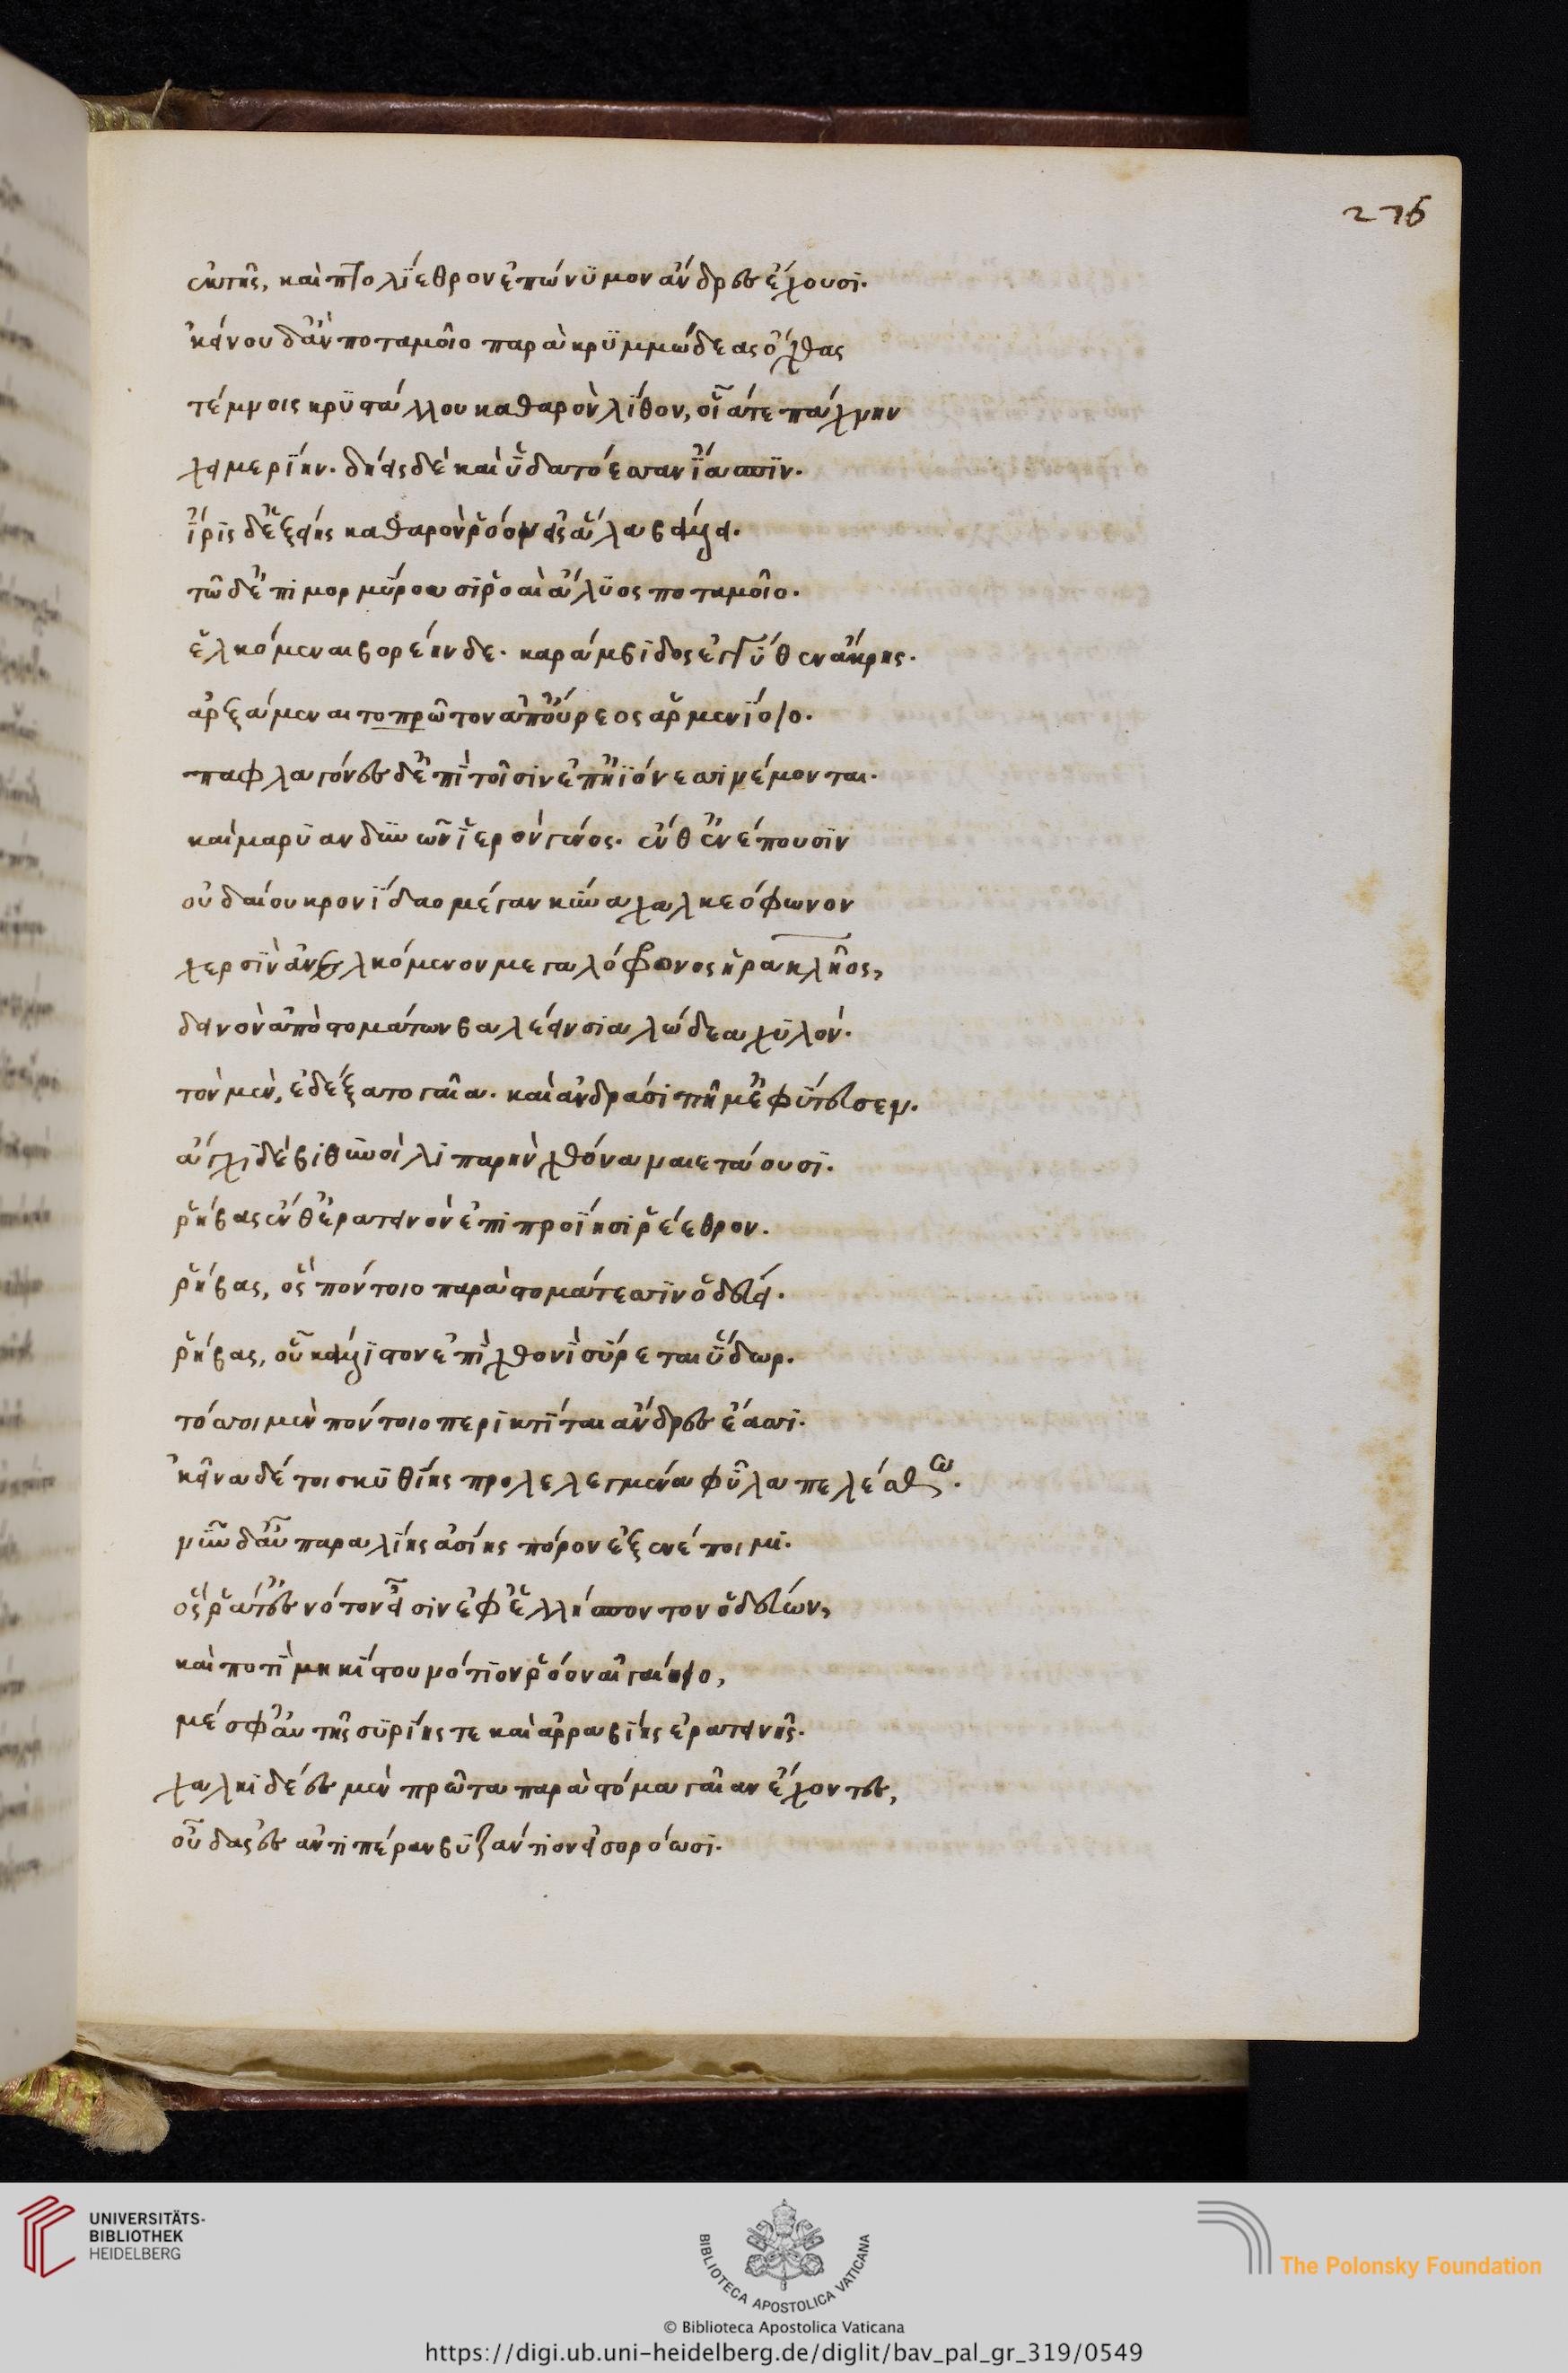 ἐκ τῆς, καὶ πτολίεθρον ἐπώνυμον ἄνδρες ἔχουσϊ.
κείνου δ' ἂν ποταμοῖο παρὰ κρυμμώδεας ὄχθας
τέμνοις κρυστάλλου καθαρὸν λίθον, οἷά τε πάχνην
χειμερίην. δήεις δὲ καὶ ὑδατόεσσαν ἴασπιν.
ἶρις δ' ἑξείης καθαρὸν ῥόον εἰς ἅλα βάλλει.
τῶ δ' ἔπι μορμύρουσι ῥοαὶ ἅλυος ποταμοῖο.
ἑλκόμεναι βορέηνδε. καράμβιδος ἐγγύθεν ἄκρης.
ἀρξάμεναι τοπρῶτον ἀπ' οὔρεος ἀρμενίοιο.
παφλαγόνες δ' ἐπὶ τοῖσιν ἐπ' ἠϊόνεσσι νέμονται.
καὶ μαρυανδυνῶν ἱερὸν γένος. ἔνθ' ἐνέπουσιν
οὐδαίου κρονίδαο μέγαν κύνα χαλκεόφωνον
χερσὶν ἀνελκόμενον μεγαλόφρονος ἡρακλῆος,
δεινὸν ἀπὸ στομάτων βαλέειν σιαλώδεα χυλόν.
τὸν μὲν, ἐδέξατο γαῖα. καὶ ἀνδράσι πῆμ' ἐφύτευσεν.
ἄγχι δὲ βιθυνοὶ λιπαρὴν χθόνα ναιετάουσϊ.
ῥήβας ἔνθ' ἐρατεινὸν ἐπιπροΐησι ῥέεθρον.
ῥήβας, ὃς πόντοιο παρὰ στομάτεσσιν ὁδεύει.
ῥήβας, οὗ κάλλιστον ἐπὶ χθονὶ σύρεται ὕδωρ.
τόσσοι μὲν πόντοιο περικτίται ἄνδρες ἔασσι.
κεῖνα δέ τοι σκυθίης προλελεγμένα φῦλα πελέσθω.
νῦν δ' αὖ παραλίης ἀσίης πόρον ἐξενέποιμι.
ὅς ῥά τε ἐς νότον εἶσιν ἐφ' ἑλλήσποντον ὁδεύων,
καὶ ποτὶ μηκίστου νότιον ῥόον αἰγαίοιο,
μέσφ' αὐτῆς συρίης τε καὶ ἀρραβίης ἐρατεινῆς.
χαλκιδέες μὲν πρῶτα παρὰ στόμα γαῖαν ἔχοντες,
οὖδας ἐς ἀντιπέραν βυζάντιον εἰσορόωσι.
276
UNIVERSITÄTS-
BIBLIOTHEK
HEIDELBERG
BIBLIOTECA APOSTOLICA VATICANA
The Polonsky Foundation
© Biblioteca Apostolica Vaticana
https://digi.ub.uni-heidelberg.de/diglit/bav_pal_gr_319/0549